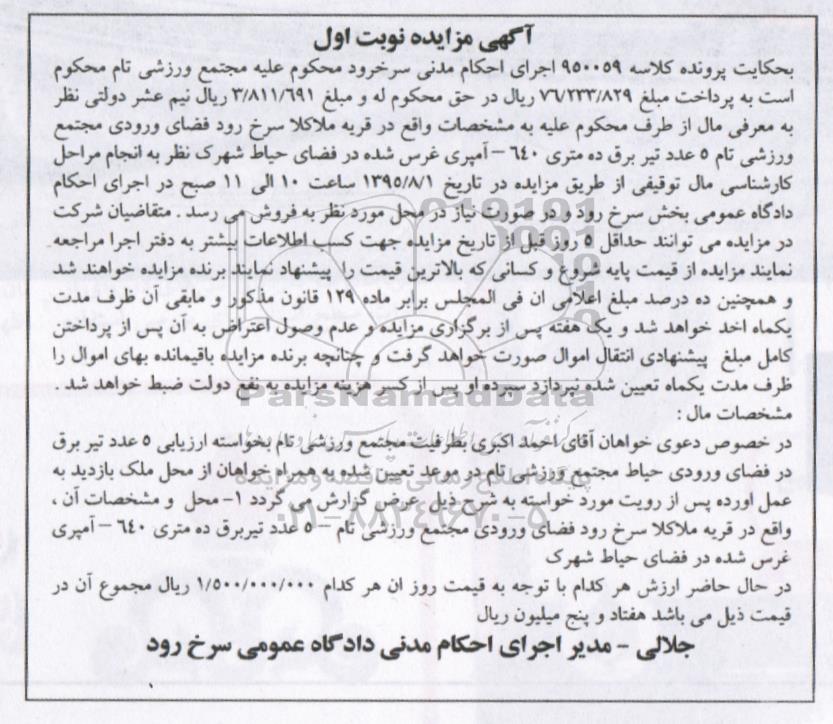 آگهی مزایده نوبت اول
بحکایت پرونده کلاسه ۹۵۰۰۵۹ اجرای احکام مدنی سرخرود محکوم علیه مجتمع ورزشی تام محکوم
است به پرداخت مبلغ ۷۶/۲۳۳/۸۲۹ ریال در حق محکوم له و مبلغ ۳/۸۱۱/۶۹۱ ریال نیم عشر دولتی نظر
به معرفی مال از طرف محکوم علیه به مشخصات واقع در قریه ملاکلا سرخ رود فضای ورودی مجتمع
ورزشی تام ۵ عدد تیر برق ده متری ۶۴۰ – آمپری غرس شده در فضای حیاط شهرک نظر به انجام مراحل
کارشناسی مال توقیفی از طریق مزایده در تاریخ ۱۳۹۵/۸/۱ ساعت ۱۰ الی ۱۱ صبح در اجرای احکام
دادگاه عمومی بخش سرخ رود و در صورت نیاز در محل مورد نظر به فروش می رسد . متقاضیان شرکت
در مزایده می توانند حداقل ۵ روز قبل از تاریخ مزایده جهت کسب اطلاعات بیشتر به دفتر اجرا مراجعه
نمایند مزایده از قیمت پایه شروع و کسانی که بالاترین قیمت را پیشنهاد نمایند برنده مزایده خواهند شد
و همچنین ده درصد مبلغ اعلامی ان فی المجلس برابر ماده ۱۲۹ قانون مذکور و مابقی آن ظرف مدت
یکماه اخد خواهد شد و یک هفته پس از برگزاری مزایده و عدم وصول اعتراض به آن پس از پرداختن
کامل مبلغ پیشنهادی انتقال اموال صورت خواهد گرفت و چنانچه برنده مزایده باقیمانده بهای اموال را
ظرف مدت یکماه تعیین شده نپردازد سپرده او پس از کسر هزینه مزایده به نفع دولت ضبط خواهد شد .
ParsNamadData
مشخصات مال :
در خصوص دعوی خواهان آقای احمد اکبری بطرفیت مجتمع ورزشی تام بخواسته ارزیابی ۵ عدد تیر برق
در فضای ورودی حیاط مجتمع ورزشی تام در موعد تعیین شده به همراه خواهان از محل ملک بازدید به
پایگاه اطلاع رسانی مناقصه و مزایده
عمل اورده پس از رویت مورد خواسته به شرح ذیل عرض گزارش می گردد ۱- محل و مشخصات آن ،
۰۲۱-۸۸۳۴۹۶۷۰-۵
واقع در قریه ملاکلا سرخ رود فضای ورودی مجتمع ورزشی تام – ۵ عدد تیربرق ده متری ۶۴۰ – آمپری
غرس شده در فضای حیاط شهرک
در حال حاضر ارزش هر کدام با توجه به قیمت روز ان هر کدام ۱/۵۰۰/۰۰۰/۰۰۰ ریال مجموع آن در
قیمت ذیل می باشد هفتاد و پنج میلیون ریال
جلالی – مدیر اجرای احکام مدنی دادگاه عمومی سرخ رود